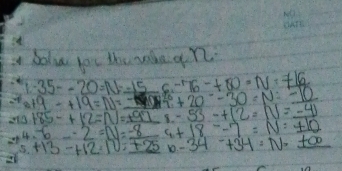 NO.
DATE
Solve for the value of n:
1. 35 - -20 = N = -15 6. -76 - +80 = N: +16
+9 = +19 = N = 7. +20 - 30 = N: -10
3. +85 - +12 = N = +97 8. - 53 - +12 = N = -41
4. -6 - 2 = N = -8 9. +18 - -7 = N: +10
5. +13 - +12 = N = +25 10. -34 +34 = N = +00